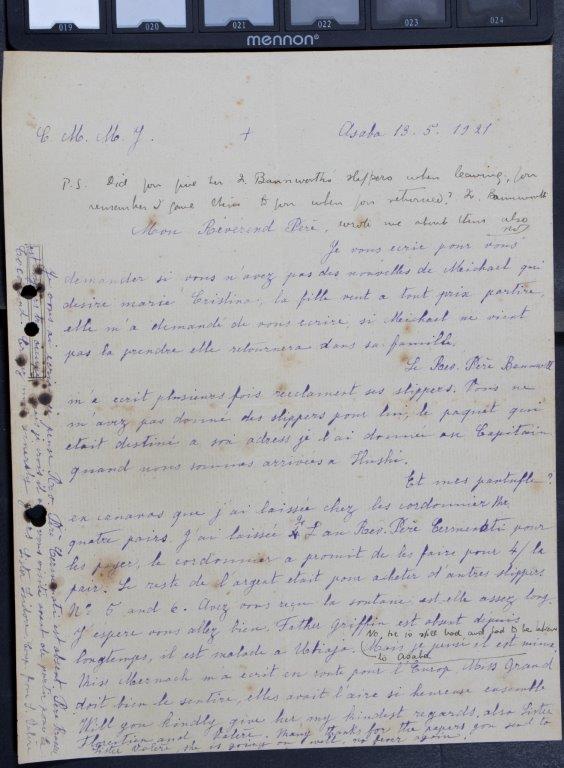 019 020 021 022 023 024
mennon
C. M. M. J. + Asaba 13. 5. 1921
P.S. Did you give her Fr. Bannwarth's slippers when leaving, you
remember I gave them to you when you returned? Fr. Bannwarth
wrote me about them also
Mon Révérend Père,
Je vous écrie pour vous
demander si vous n'avez pas des nouvelles de Meichael qui
desire marié Cristina, la fille veut a tout prix partire,
elle m'a demandé de vous ecrire, si Meichael ne vient
pas la prendre elle retournera dans sa famille.
Le Rev. Père Bannwarth
m'a ecrit plusieurs fois reclament ses slippers. Vous ne
m'avez pas donné des slippers pour lui, le paquet qui
etait destiné a son adress je l'ai donnée au Capitain
quand nous sommes arrivées a Ilushi.
Et mes pantufle?
en canavas que j'ai laissée chez les cordonnier the
quatre pairs j'ai laissée £ au Rev. Père Cermenati pour
les payer, le cordonnier a promit de les faire pour 4/ la
pair. Le reste de l'argent etait pour acheter d'antres slippers
Nº 5 and 6. Avez vous reçu la soutane, est elle assez long.
J'espere vous allez bien. Father Griffin est absent depuis
longtemps, il est malade a Ubiaja. (Mais je pense il est mieux,
No, he is still bad, and had to be
to Asaba
Miss Mernach m'a ecrit en route pour l'Europ Miss Grand
doit bien le sentire, elles avait l'aire si heureuse ensemble
Will you kindly give her my kindest regards, also Sister
Florentien and Valere. Many thanks for the papers you send to
Sister Valere she is going on well, no fever again!